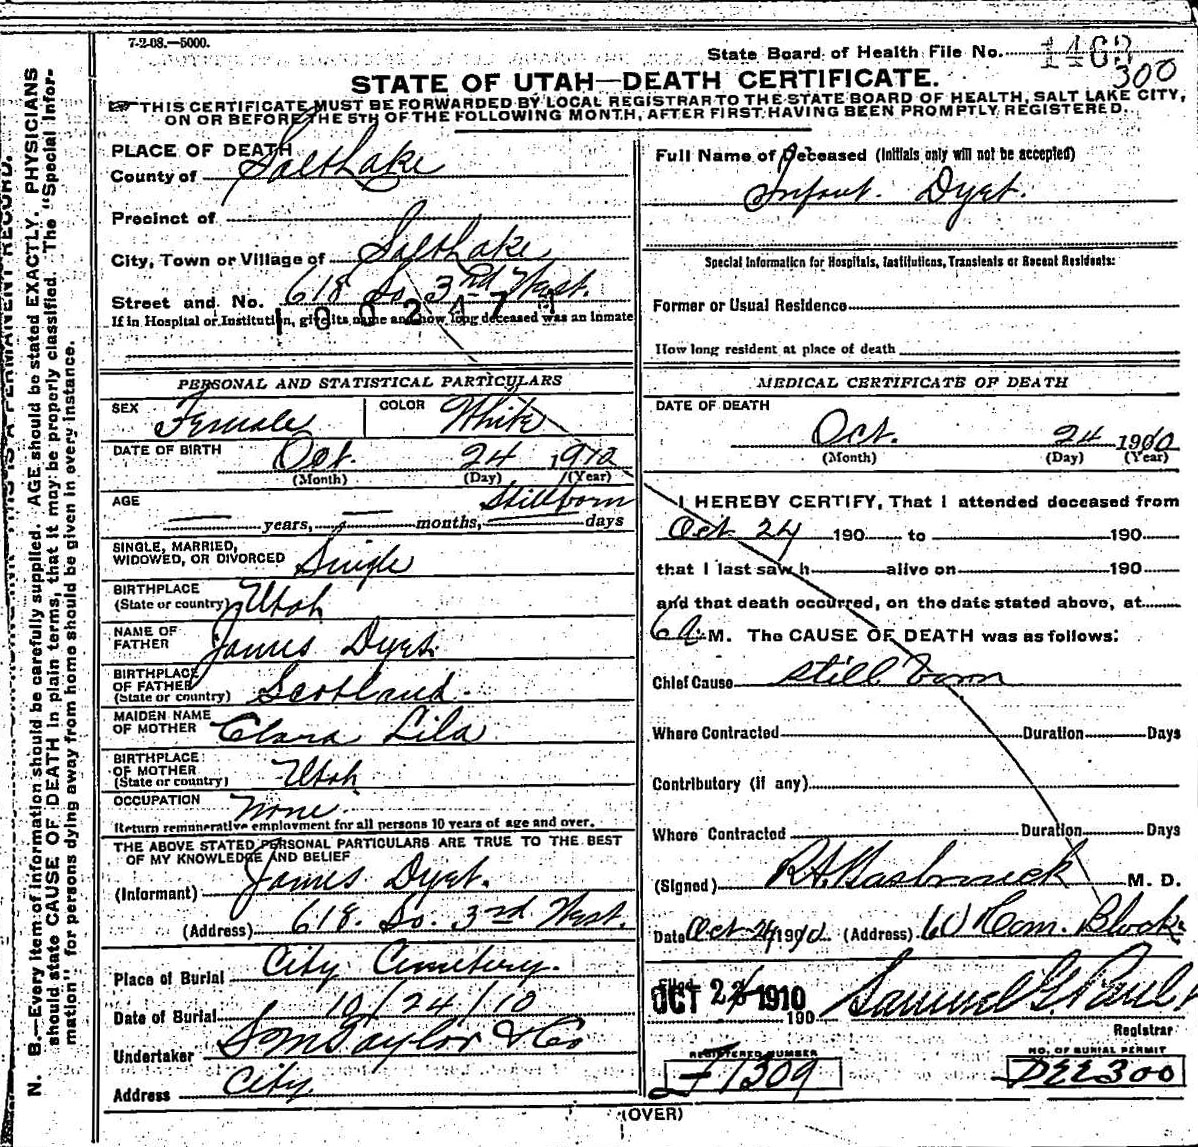 7-2-08.—5000.
State Board of Health File No. 1463
300
STATE OF UTAH—DEATH CERTIFICATE.
THIS CERTIFICATE MUST BE FORWARDED BY LOCAL REGISTRAR TO THE STATE BOARD OF HEALTH, SALT LAKE CITY,
ON OR BEFORE THE 5TH OF THE FOLLOWING MONTH, AFTER FIRST HAVING BEEN PROMPTLY REGISTERED.
PLACE OF DEATH
County of Salt Lake
Precinct of
City, Town or Village of Salt Lake
Street and No. 618 So 3rd West.
1002471
If in Hospital or Institution, give its name and how long deceased was an inmate
PERSONAL AND STATISTICAL PARTICULARS
SEX Female COLOR White
DATE OF BIRTH Oct. 24 1910
(Month) (Day) (Year)
AGE Stillborn
years, months, days
SINGLE, MARRIED,
WIDOWED, OR DIVORCED Single
BIRTHPLACE
(State or country) Utah
NAME OF
FATHER James Dyet.
BIRTHPLACE
OF FATHER
(State or country) Scotland.
MAIDEN NAME
OF MOTHER Clara Lila
BIRTHPLACE
OF MOTHER
(State or country) Utah
OCCUPATION None.
Return remunerative employment for all persons 10 years of age and over.
THE ABOVE STATED PERSONAL PARTICULARS ARE TRUE TO THE BEST
OF MY KNOWLEDGE AND BELIEF
(Informant) James Dyet.
(Address) 618. So. 3rd West.
Place of Burial City Cemetery.
Date of Burial 10/24/10
Undertaker S M Taylor & Co
Address City
Full Name of Deceased (Initials only will not be accepted)
Infant. Dyet.
Special Information for Hospitals, Institutions, Transients or Recent Residents:
Former or Usual Residence
How long resident at place of death
MEDICAL CERTIFICATE OF DEATH
DATE OF DEATH
Oct. 24 1910
(Month) (Day) (Year)
I HEREBY CERTIFY, That I attended deceased from
Oct 24 190 to 190
that I last saw h alive on 190
and that death occurred, on the date stated above, at
6 A. M. The CAUSE OF DEATH was as follows:
Chief Cause still born
Where Contracted Duration Days
Contributory (if any)
Where Contracted Duration Days
(Signed) M. D.
Date Oct 24 1910 (Address) 60 Com. Block
Filed OCT 1910 190 Samuel G. Paul
Registrar
REGISTERED NUMBER NO. OF BURIAL PERMIT
1309 300
(OVER)
N. B.—Every item of information should be carefully supplied. AGE should be stated EXACTLY. PHYSICIANS
should state CAUSE OF DEATH in plain terms, that it may be properly classified. The "Special Infor-
mation" for persons dying away from home should be given in every instance.